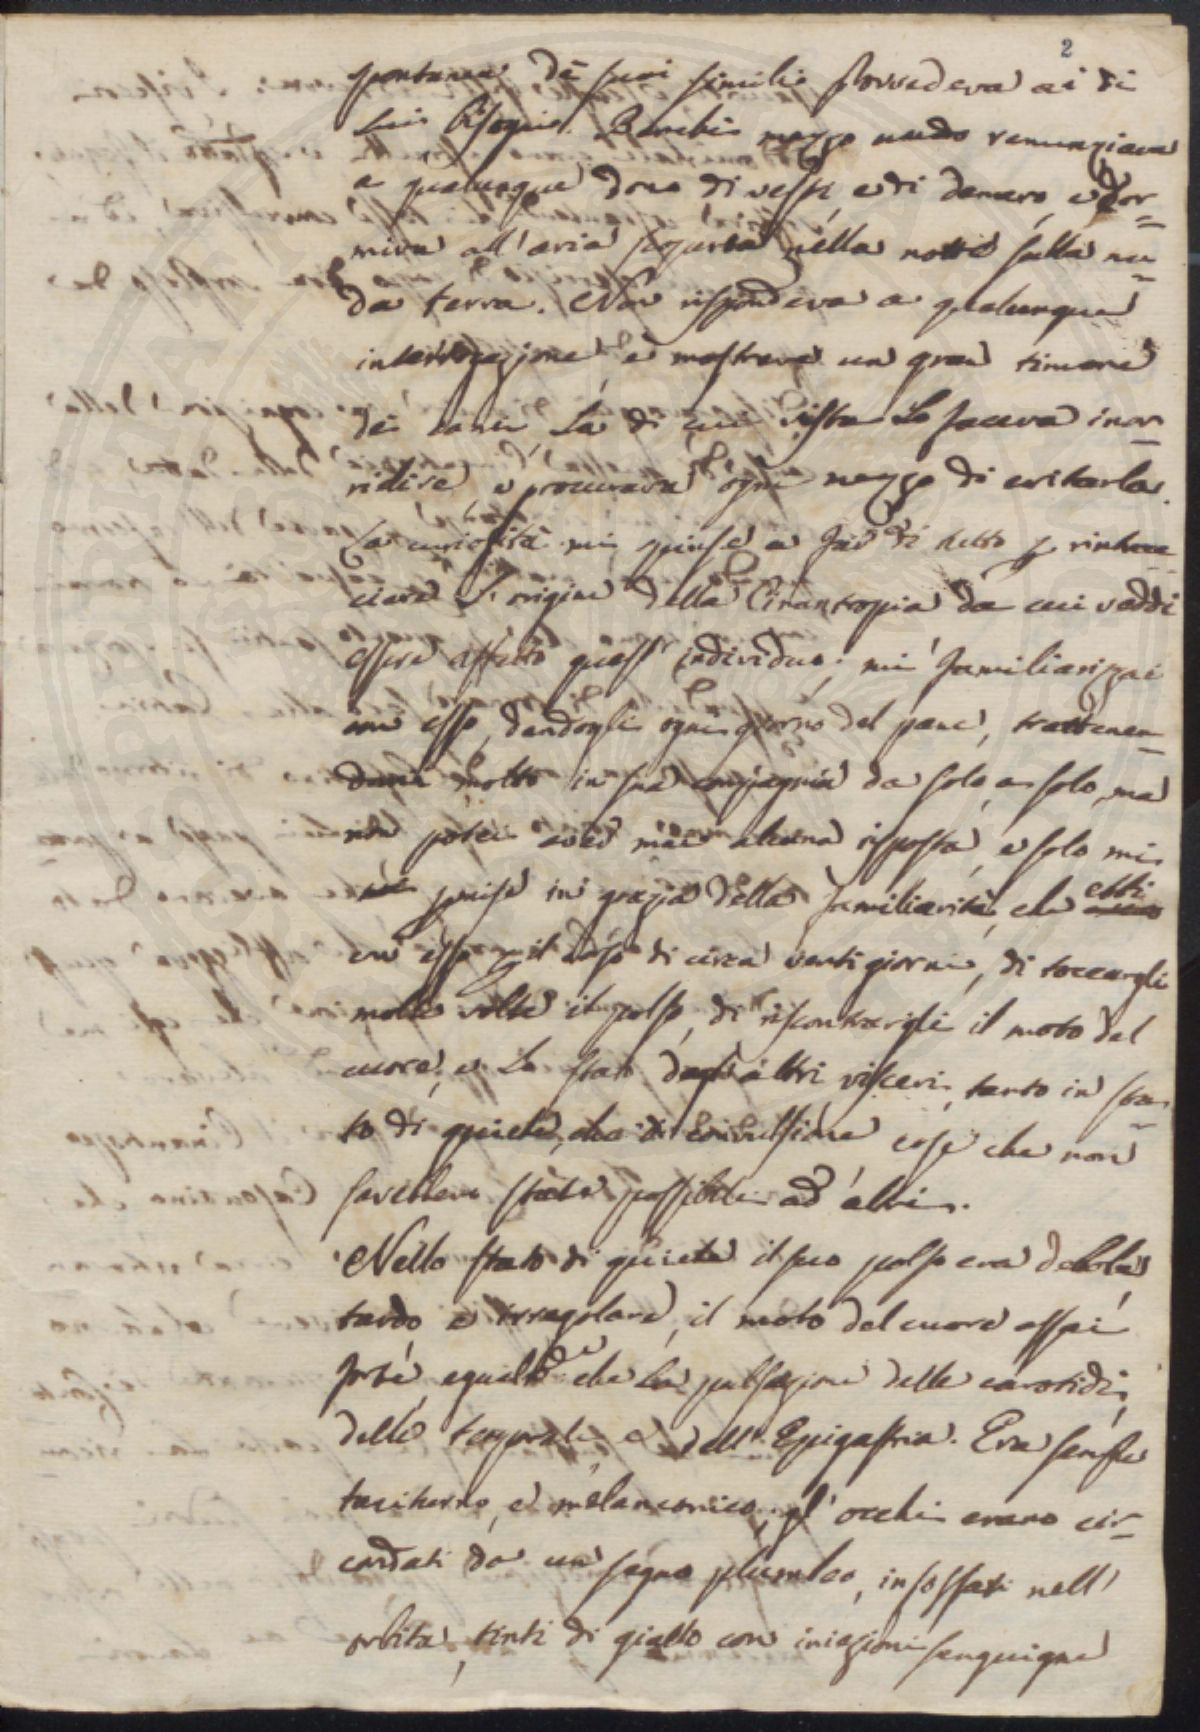 2
spontanea de suoi simili provvedeva ai di
lui bisogni. Benchè mezzo nudo renunziava
a qualunque dono di vesti e di denaro, e dor=
miva all'aria scoperta nella notte sulla nu=
da terra. Non rispondeva a qualunque
interrogazione e mostrava un gran timore
dei cani la di cui vista lo faceva inor=
ridire, e procurava ogni mezzo di evitarla.
La curiosità mi spinse a far di tutto p rintrac=
ciare l'origine della Cinantropia da cui vaddi
essere affetto quest'individuo; mi familiarizzai
con esso, dandogli ogni giorno del pane, trattenen=
domi molto in sua compagnia da solo, a solo, ma
non potei aver mai alcuna risposta, e solo mi
riuscì in grazia della familiarità, che ebbi
con esso p il caso di circa venti giorni, di toccargli
molte volte il polso, di riscontrargli il moto del
cuore, e lo stato degli altri visceri, tanto in sta=
to di quiete, che di convulsione cose che non
sarebbero state possibili ad altri.
Nello stato di quiete il suo polso era debole,
tardo e irregolare, il moto del cuore assai
forte, egualmte che la pulsazione delle carotidi,
delle temporali e dell'Epigastrio. Era sempre
taciturno, e melanconico, gl'occhi erano cir=
condati da un segno plumbeo, infossati nell'
orbita, tinti di giallo con iniezioni sanguigne